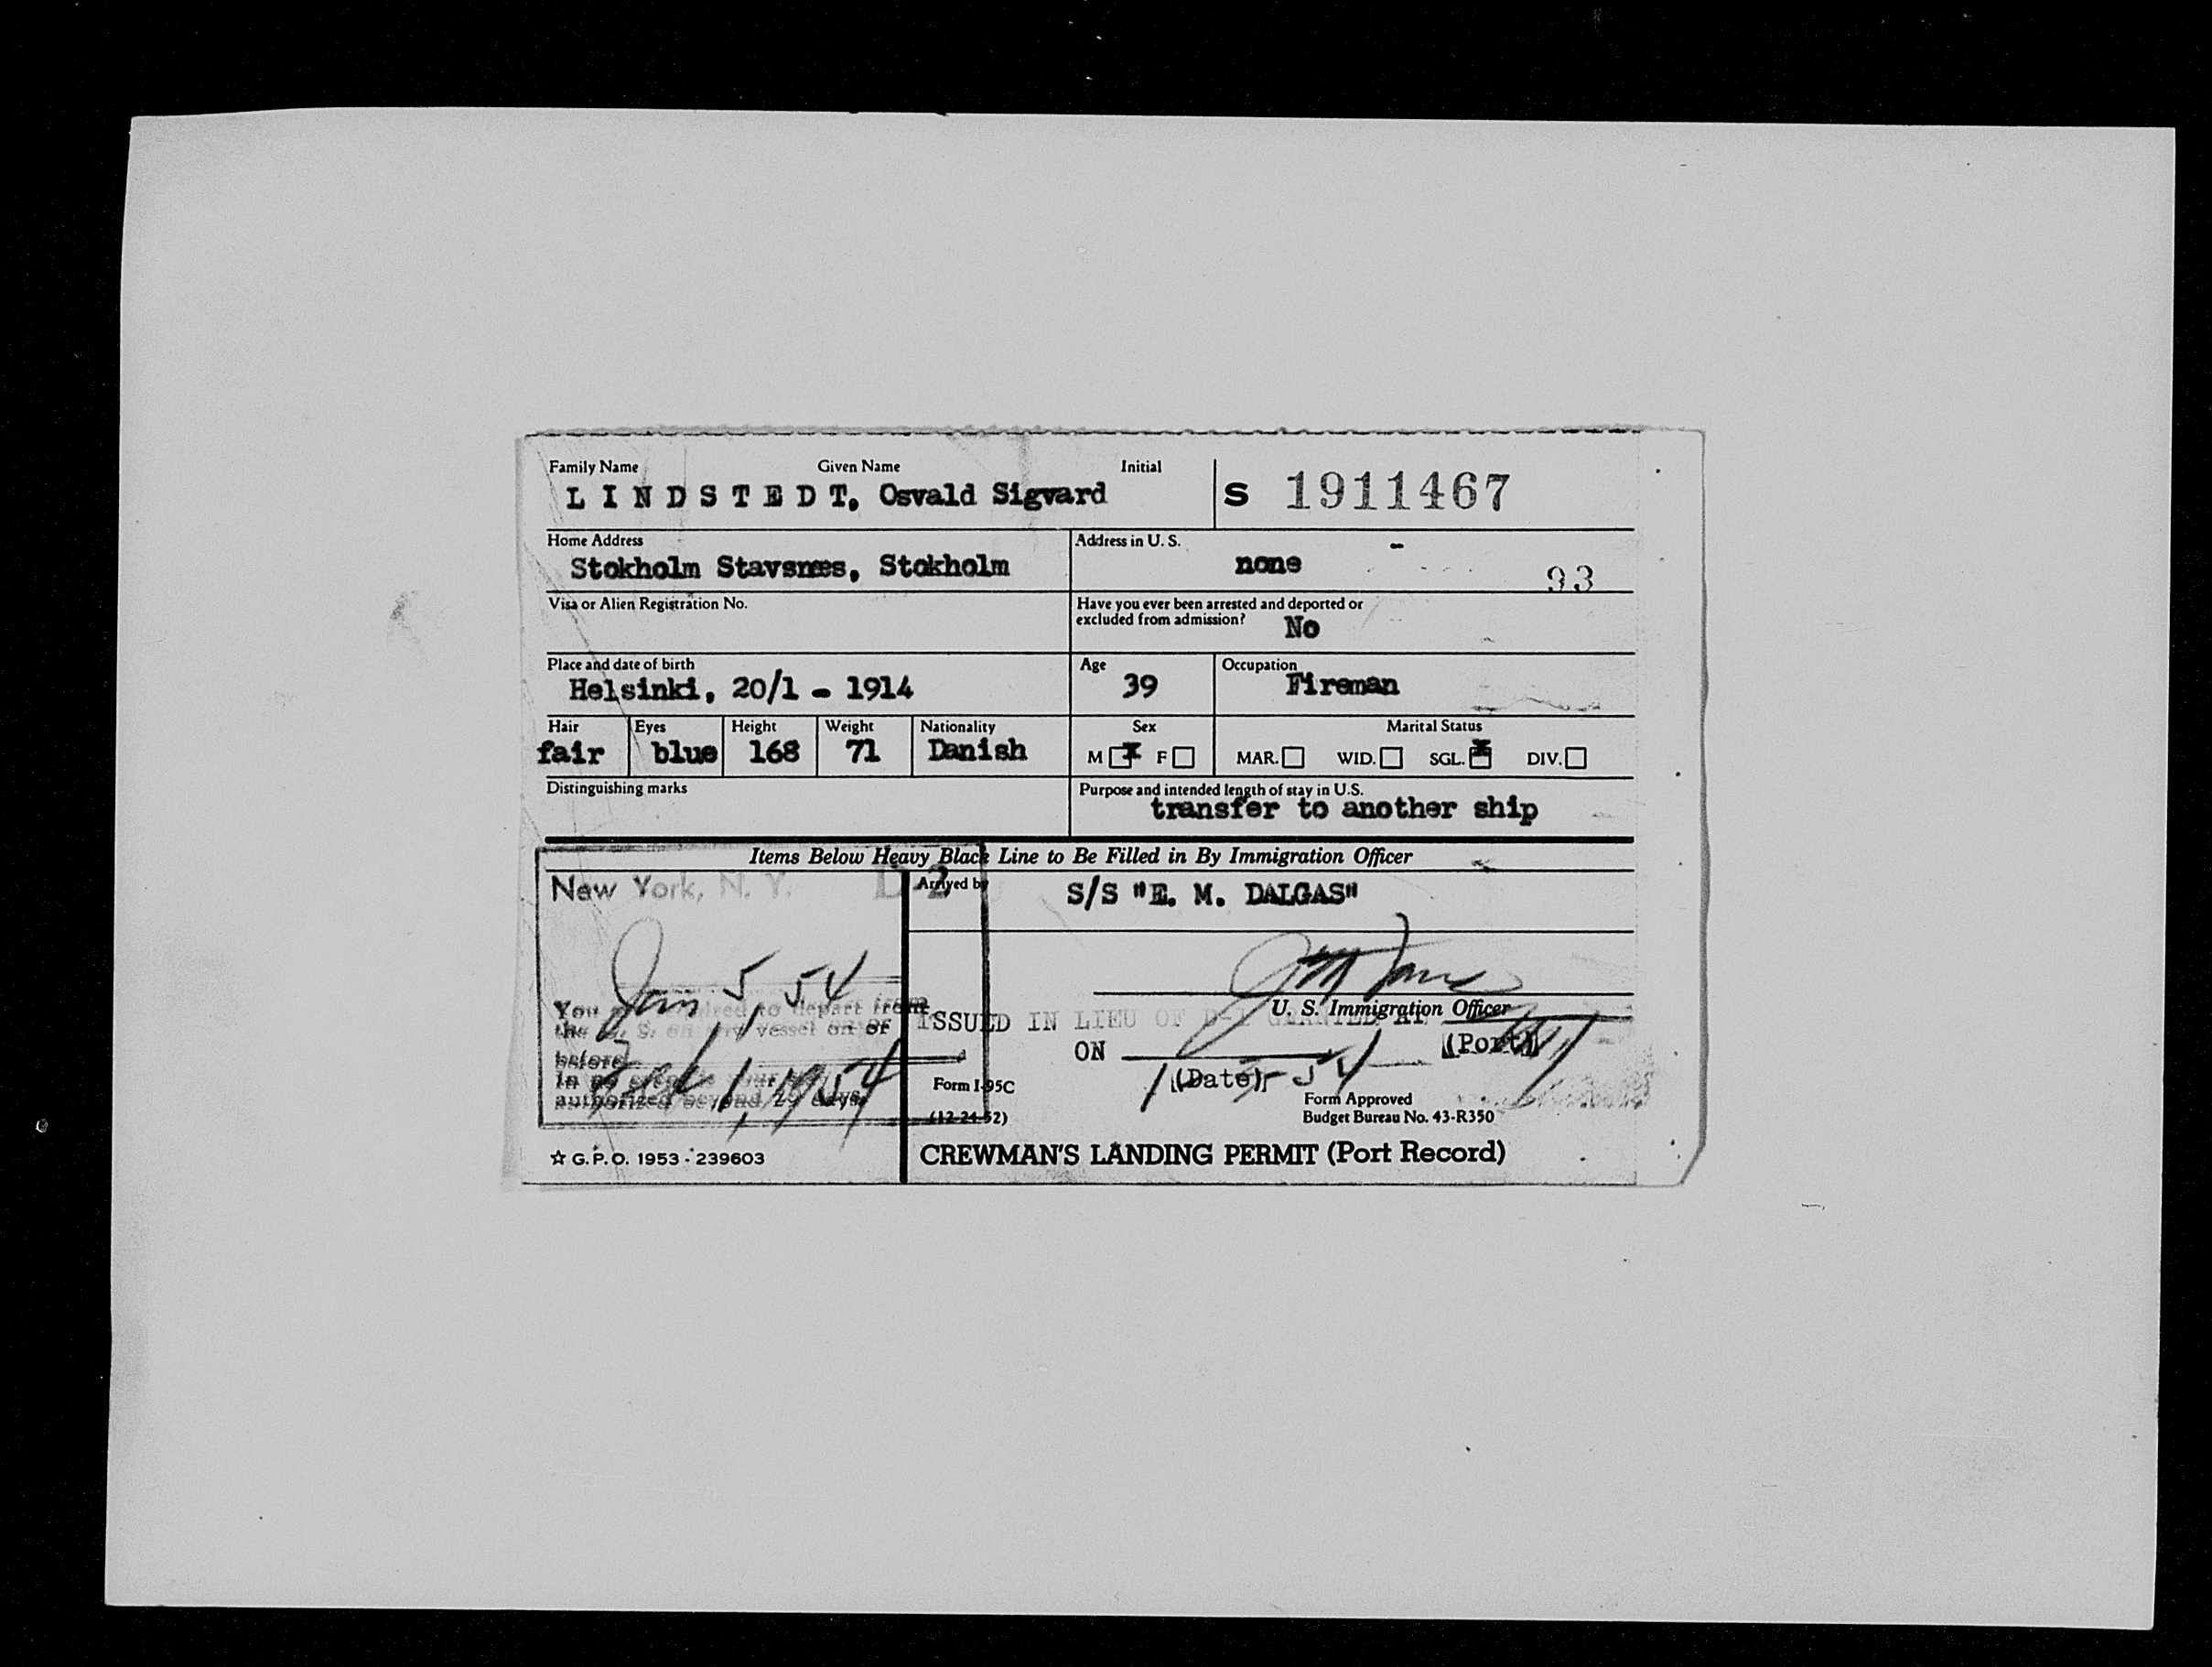 Family Name Given Name Initial
L I N D S T E D T, Osvald Sigvard S 1911467
Home Address Address in U. S.
Stokholm Stavsnæs, Stokholm none 93
Visa or Alien Registration No. Have you ever been arrested and deported or
excluded from admission? No
Place and date of birth Age Occupation
Helsinki, 20/1 - 1914 39 Fireman
Hair Eyes Height Weight Nationality Sex Marital Status
fair blue 168 71 Danish M X F MAR. WID. SGL. X DIV.
Distinguishing marks Purpose and intended length of stay in U.S.
transfer to another ship
Items Below Heavy Black Line to Be Filled in By Immigration Officer
New York, N. Y. D 2 Arrived by S/S "E. M. DALGAS"
Jan 5, 54
You to depart from
the U. S. on any vessel on or
before
Feb 1, 1954
authorized beyond 29 days
U. S. Immigration Officer
ISSUED IN LIEU OF D-1 GRANTED AT
(Port)
ON 1-5-54
(Date)
Form I-95C
(12-24-52)
Form Approved
Budget Bureau No. 43-R350
☆ G.P.O. 1953 - 239603
CREWMAN'S LANDING PERMIT (Port Record)